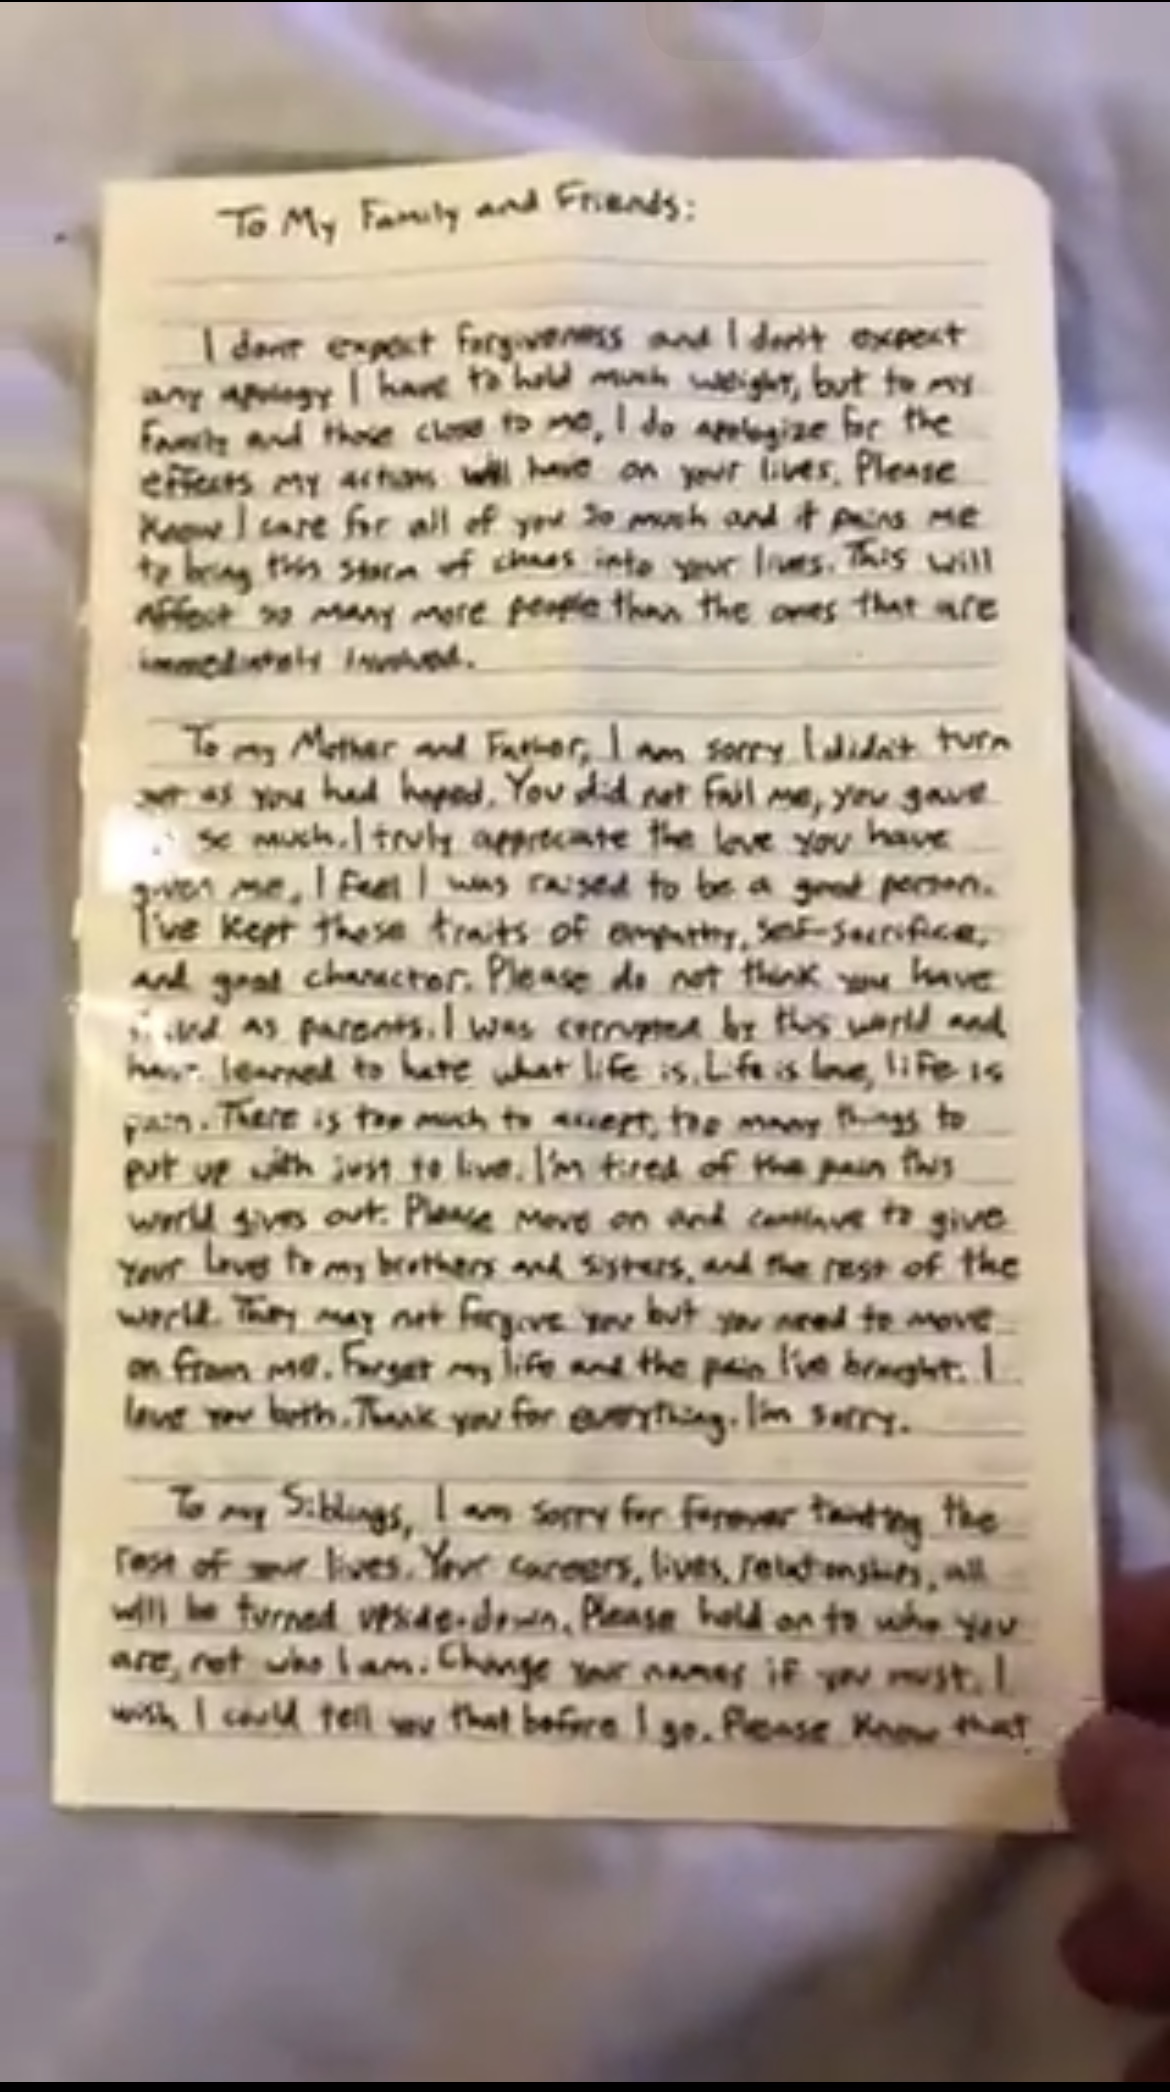 To My Family and Friends:
I dont expect forgiveness and I don't expect
any apology I have to hold much weight, but to my
family and those close to me, I do apologize for the
effects my actions will have on your lives. Please
know I care for all of you so much and it pains me
to bring this storm of chaos into your lives. This will
affect so many more people than the ones that are
immediately involved.
To my Mother and Father, I am sorry I didn't turn
out as you had hoped. You did not fail me, you gave
so much. I truly appreciate the love you have
given me, I feel I was raised to be a good person.
I've kept those traits of empathy, self-sacrifice,
and good character. Please do not think you have
as parents. I was corrupted by this world and
have learned to hate what life is. Life is love, life is
pain. There is too much to accept, too many things to
put up with just to live. I'm tired of the pain this
world gives out. Please move on and continue to give
your love to my brothers and sisters, and the rest of the
world. They may not forgive you but you need to move
on from me. Forget my life and the pain I've brought. I
love you both. Thank you for everything. I'm sorry.
To my Siblings, I am sorry for forever tainting the
rest of your lives. Your careers, lives, relationships, all
will be turned upside-down. Please hold on to who you
are, not who I am. Change your names if you must. I
wish I could tell you that before I go. Please know that